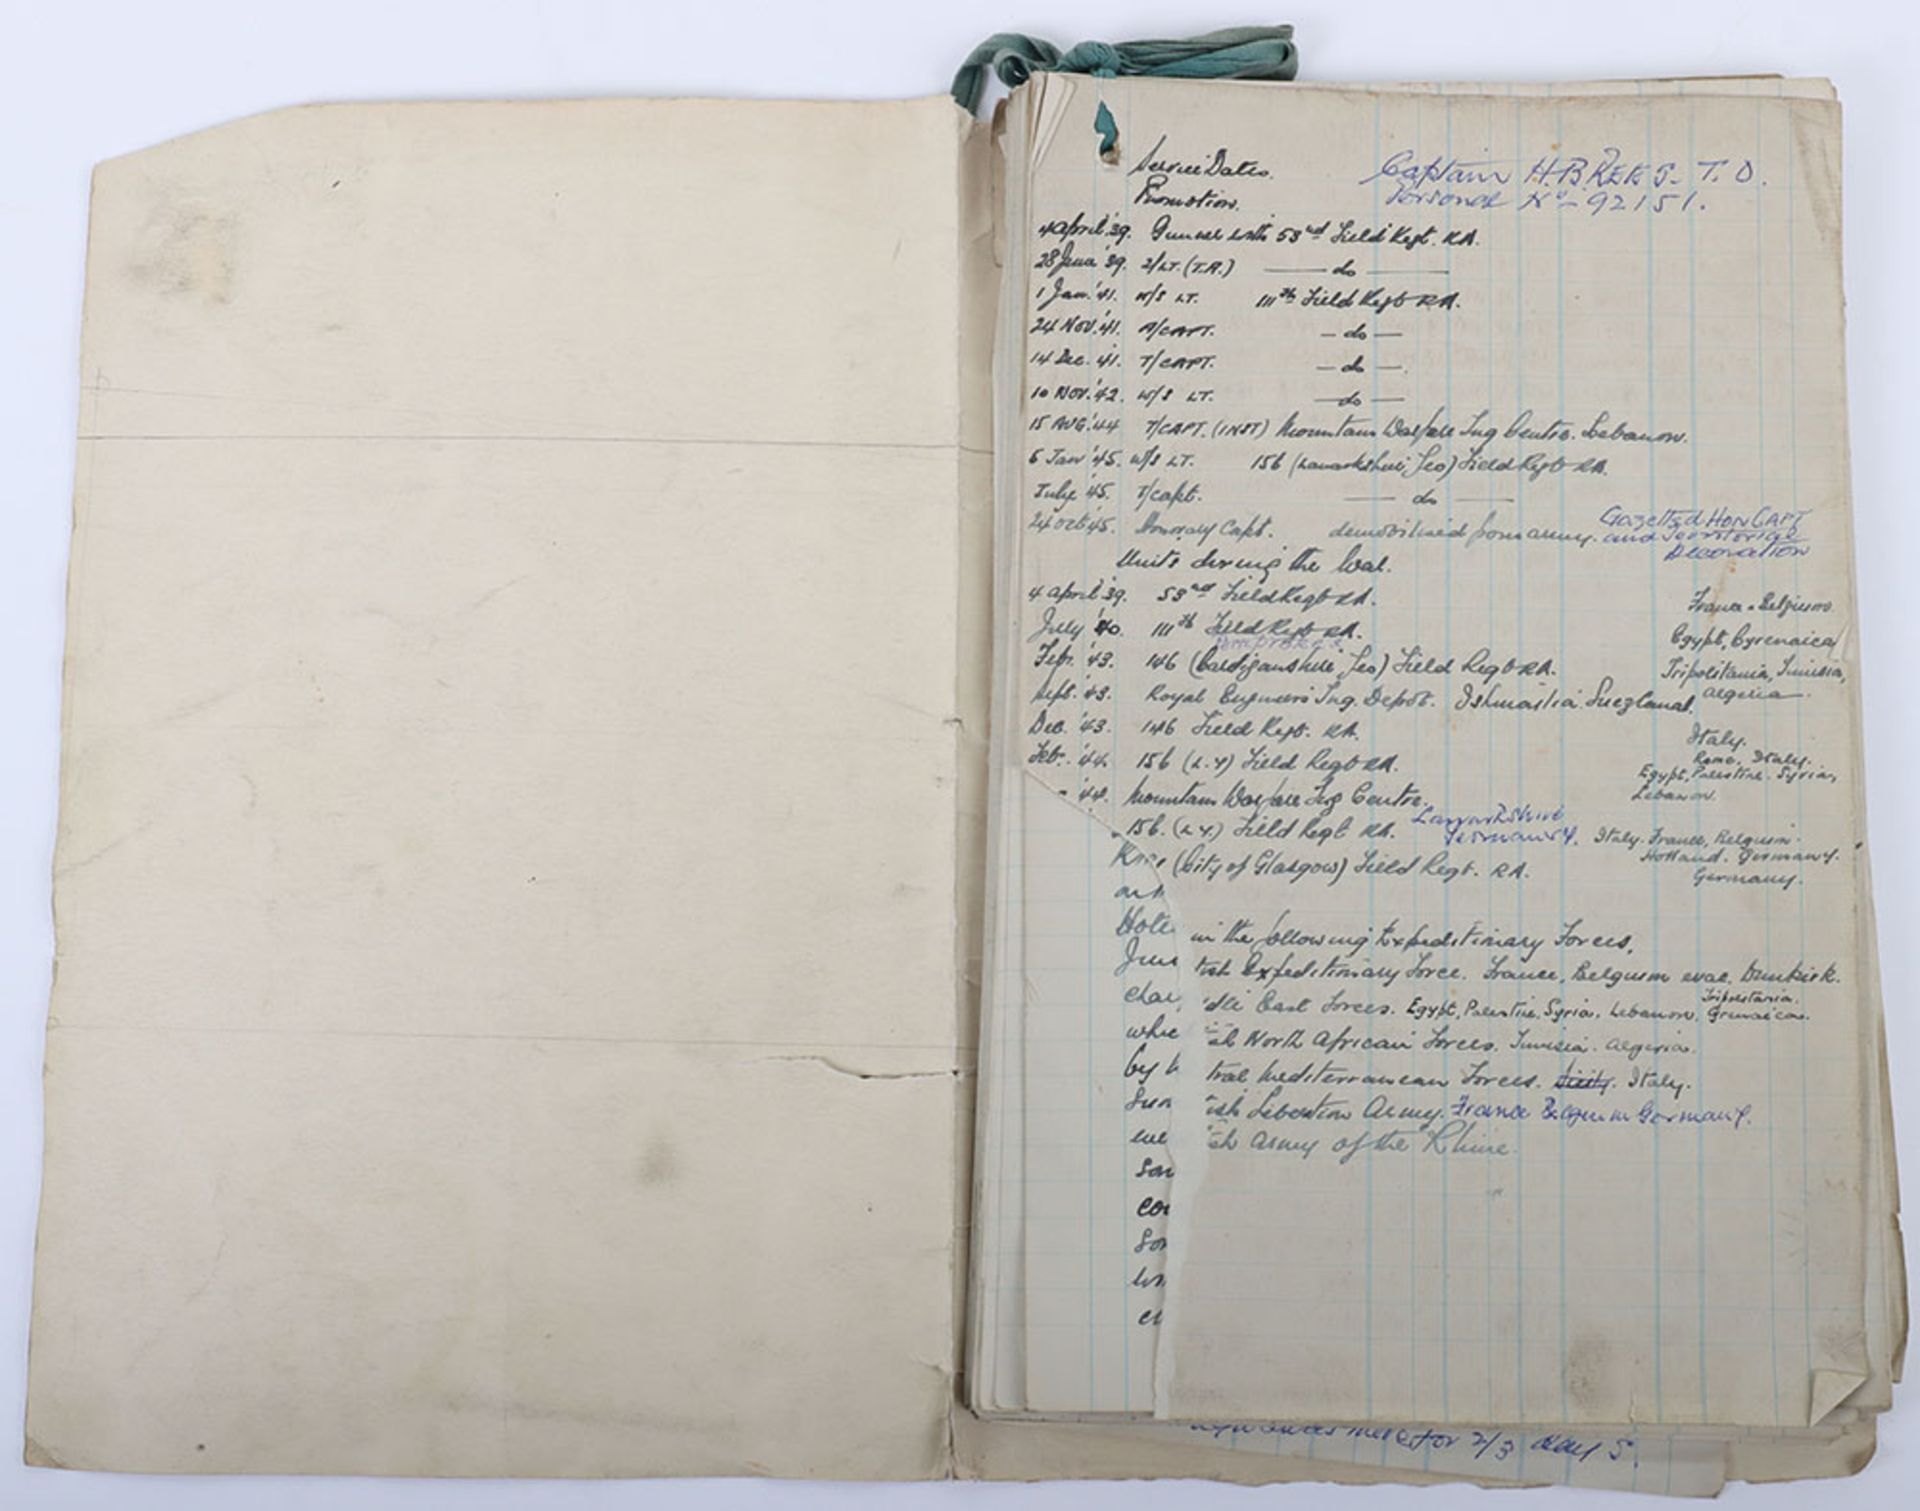 Service Dates.
Promotion.
Captain H.B. REES. T.D.
Personal No 92151.
4 April '39. Gunner with 53rd Field Regt. RA.
28 June '39. 2/LT. (T.A.) — do —
1 Jan. '41. W/S LT. 111th Field Regt RA.
24 Nov. '41. A/CAPT. — do —
14 Dec. '41. T/CAPT. — do —
10 Nov. '42. W/S LT. — do —
15 AUG. '44 T/CAPT. (INST) Mountain Warfare Tng Centre. Lebanon.
5 Jan '45. W/S LT. 156 (Lanarkshire Yeo) Field Regt RA.
July '45. T/Capt. — do —
24 Oct '45. Honorary Capt. demobilised from army. Gazetted HON CAPT
and Territorial
Decoration
Units during the War.
4 April '39. 53rd Field Regt RA. France & Belgium.
July '40. 111th Field Regt RA. Egypt, Cyrenaica
Febr. '43. 146 (Cardiganshire Yeo) Field Regt RA. Tripolitania, Tunisia,
Algeria
Sept. '43. Royal Engineers Tng. Depot. Ishmailia. Suez Canal.
Dec. '43. 146 Field Regt. RA. Italy.
Feb. '44. 156 (L.Y) Field Regt RA. Rome, Italy.
Egypt, Palestine. Syria,
Lebanon.
- '44. Mountain Warfare Tng Centre.
156. (L.Y.) Field Regt RA. Lanarkshire
Yeomanry. Italy. France, Belgium.
Holland. Germany.
(City of Glasgow) Field Regt. RA. Germany.
in the following Expeditionary Forces.
tish Expeditionary Force. France, Belgium evac. Dunkirk.
dle East Forces. Egypt, Palestine, Syria, Lebanon, Tripolitania.
Cyrenaica.
whe
ish North African Forces. Tunisia. Algeria.
by
tral Mediterranean Forces. Sicily. Italy.
ish Liberation Army. France Belgium Germany.
sh Army of the Rhine.
for 2/3 days.